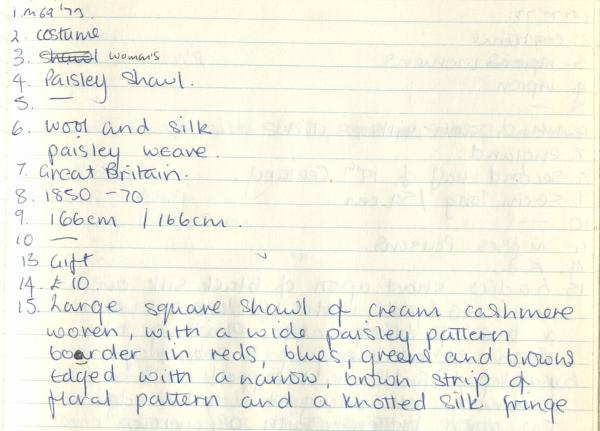 1. M69 '73
2. costume
3. shawl woman's
4. Paisley Shawl.
5. —
6. wool and silk
paisley weave.
7. Great Britain.
8. 1850 - 70
9. 166cm / 166cm.
10 —
13 Gift
14. £10
15. Large square shawl of cream cashmere
woven, with a wide paisley pattern
boarder in reds, blues, greens and browns
Edged with a narrow, brown strip of
floral pattern and a knotted silk fringe